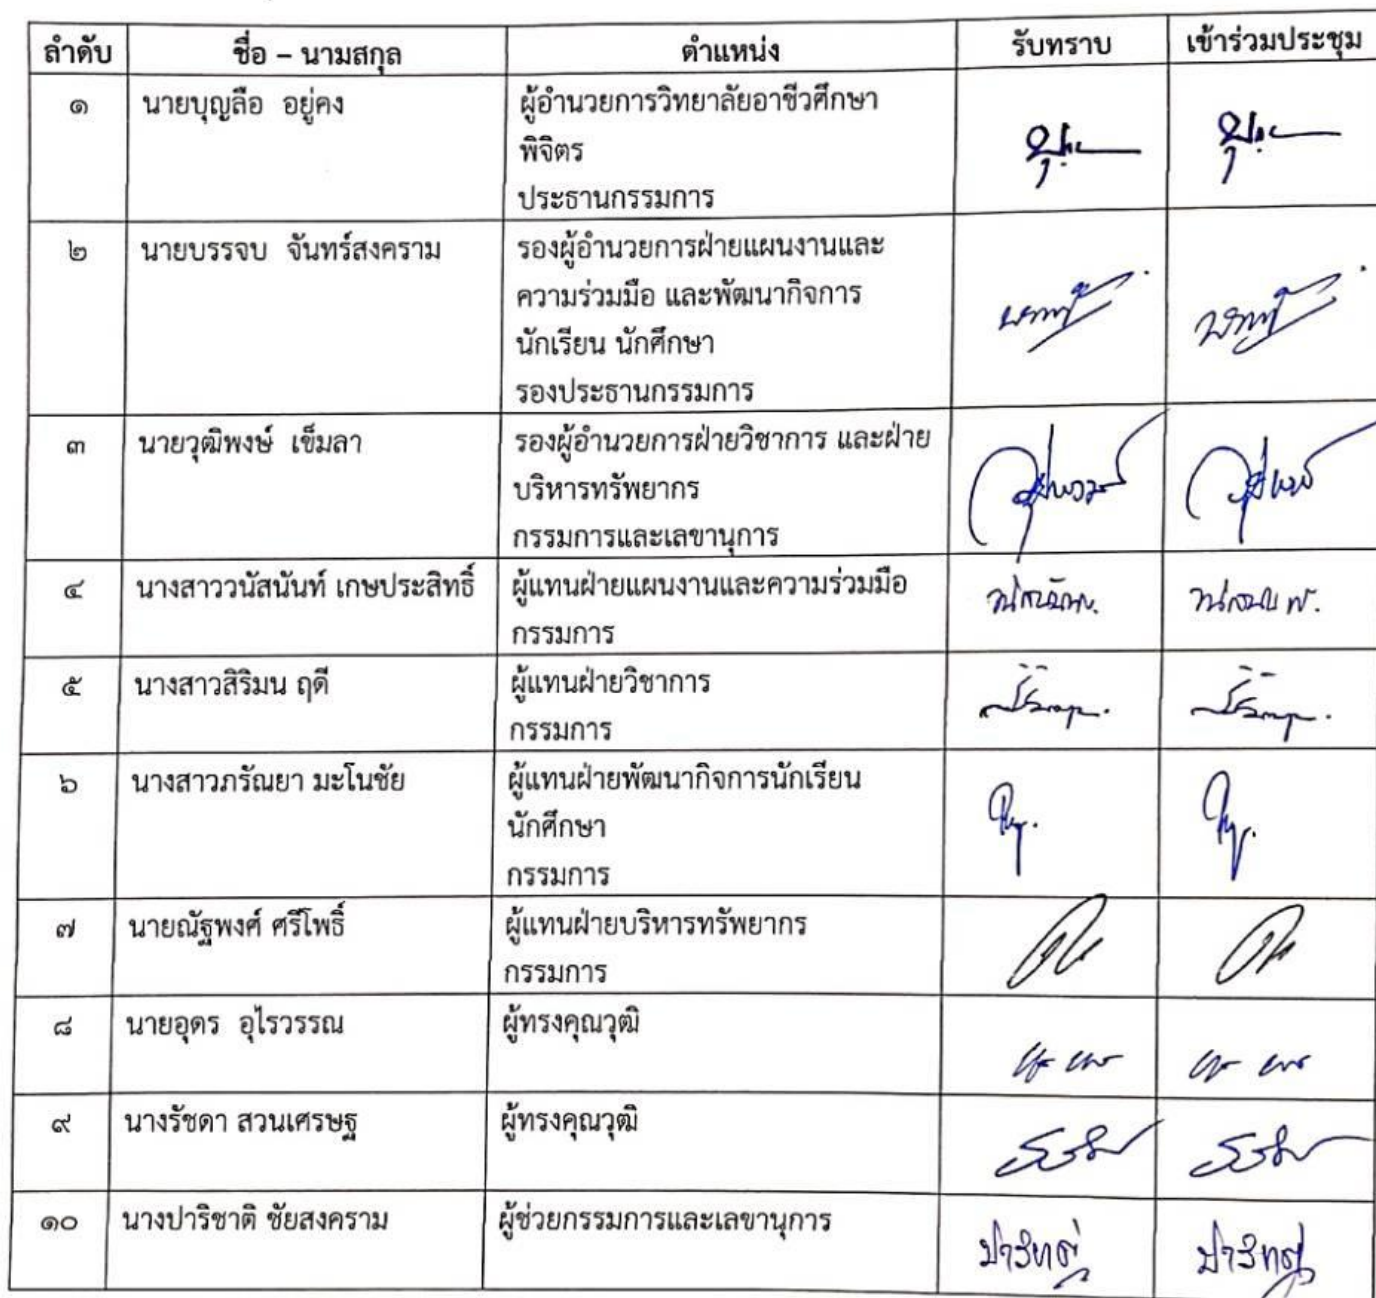 ลำดับ ชื่อ – นามสกุล ตำแหน่ง รับทราบ เข้าร่วมประชุม
๑ นายบุญลือ อยู่คง ผู้อำนวยการวิทยาลัยอาชีวศึกษา
พิจิตร
ประธานกรรมการ
๒ นายบรรจบ จันทร์สงคราม รองผู้อำนวยการฝ่ายแผนงานและ
ความร่วมมือ และพัฒนากิจการ
นักเรียน นักศึกษา
รองประธานกรรมการ
๓ นายวุฒิพงษ์ เข็มลา รองผู้อำนวยการฝ่ายวิชาการ และฝ่าย
บริหารทรัพยากร
กรรมการและเลขานุการ
๔ นางสาววนัสนันท์ เกษประสิทธิ์ ผู้แทนฝ่ายแผนงานและความร่วมมือ
กรรมการ
๕ นางสาวสิริมน ฤดี ผู้แทนฝ่ายวิชาการ
กรรมการ
๖ นางสาวภรัณยา มะโนชัย ผู้แทนฝ่ายพัฒนากิจการนักเรียน
นักศึกษา
กรรมการ
๗ นายณัฐพงศ์ ศรีโพธิ์ ผู้แทนฝ่ายบริหารทรัพยากร
กรรมการ
๘ นายอุดร อุไรวรรณ ผู้ทรงคุณวุฒิ
๙ นางรัชดา สวนเศรษฐ ผู้ทรงคุณวุฒิ
๑๐ นางปาริชาติ ชัยสงคราม ผู้ช่วยกรรมการและเลขานุการ